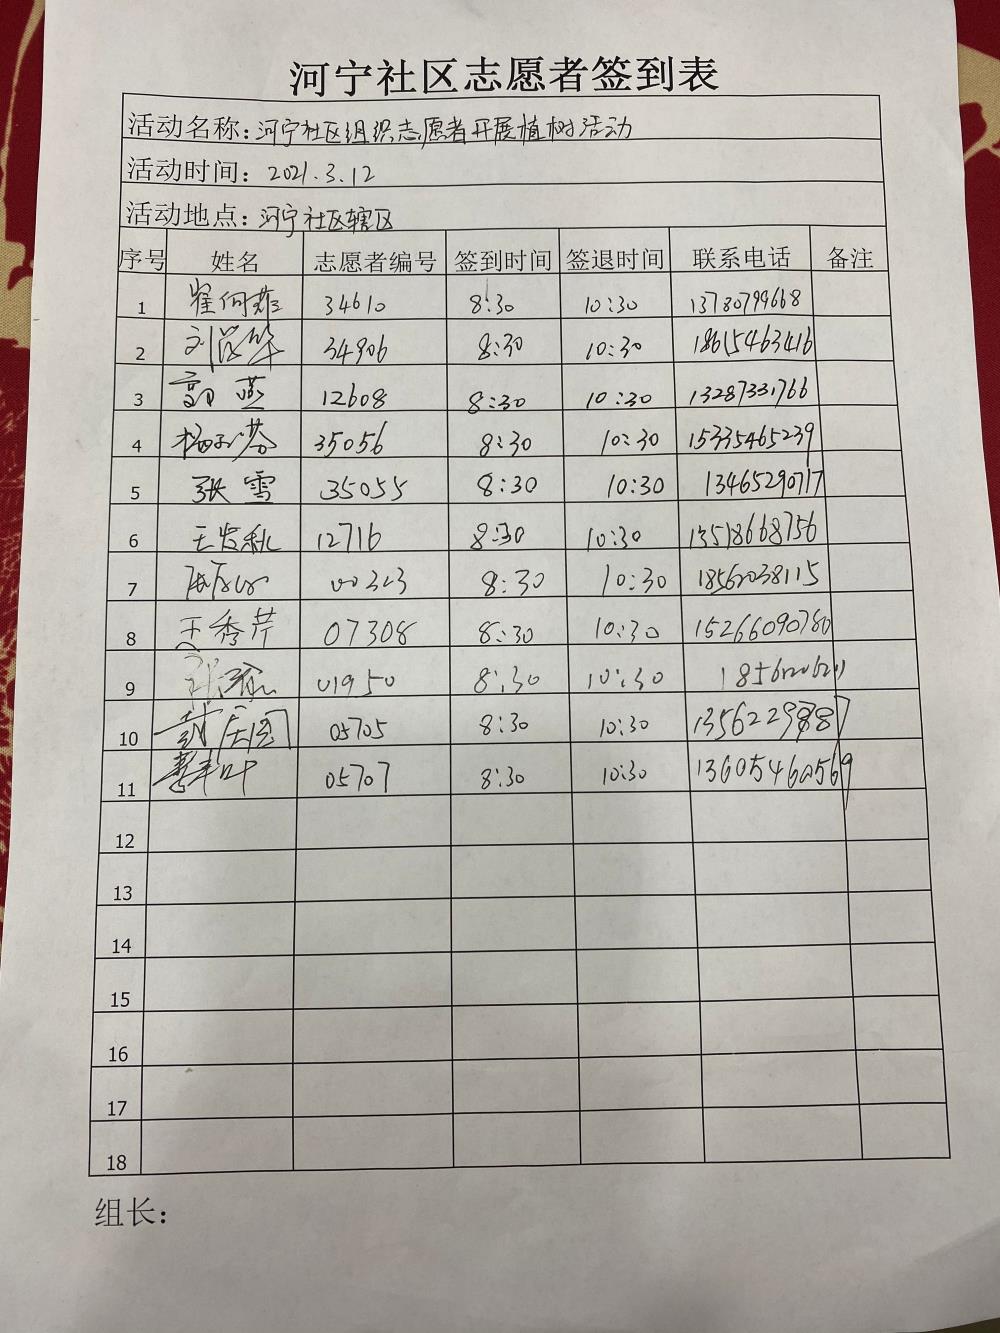 河宁社区志愿者签到表
活动名称：河宁社区组织志愿者开展植树活动
活动时间：2021.3.12
活动地点：河宁社区辖区
序号 姓名 志愿者编号 签到时间 签退时间 联系电话 备注
1 34610 8:30 10:30 13780799668
2 34906 8:30 10:30 18615463416
3 燕 12608 8:30 10:30 13287331766
4 35056 8:30 10:30 15335465239
5 张雪 35055 8:30 10:30 13465290717
6 王发秋 12716 8:30 10:30 13518668756
7 00323 8:30 10:30 18562038115
8 王秀芹 07308 8:30 10:30 15266090780
9 01950 8:30 10:30
10 05705 8:30 10:30
11 05707 8:30 10:30 13605460569
12
13
14
15
16
17
18
组长：